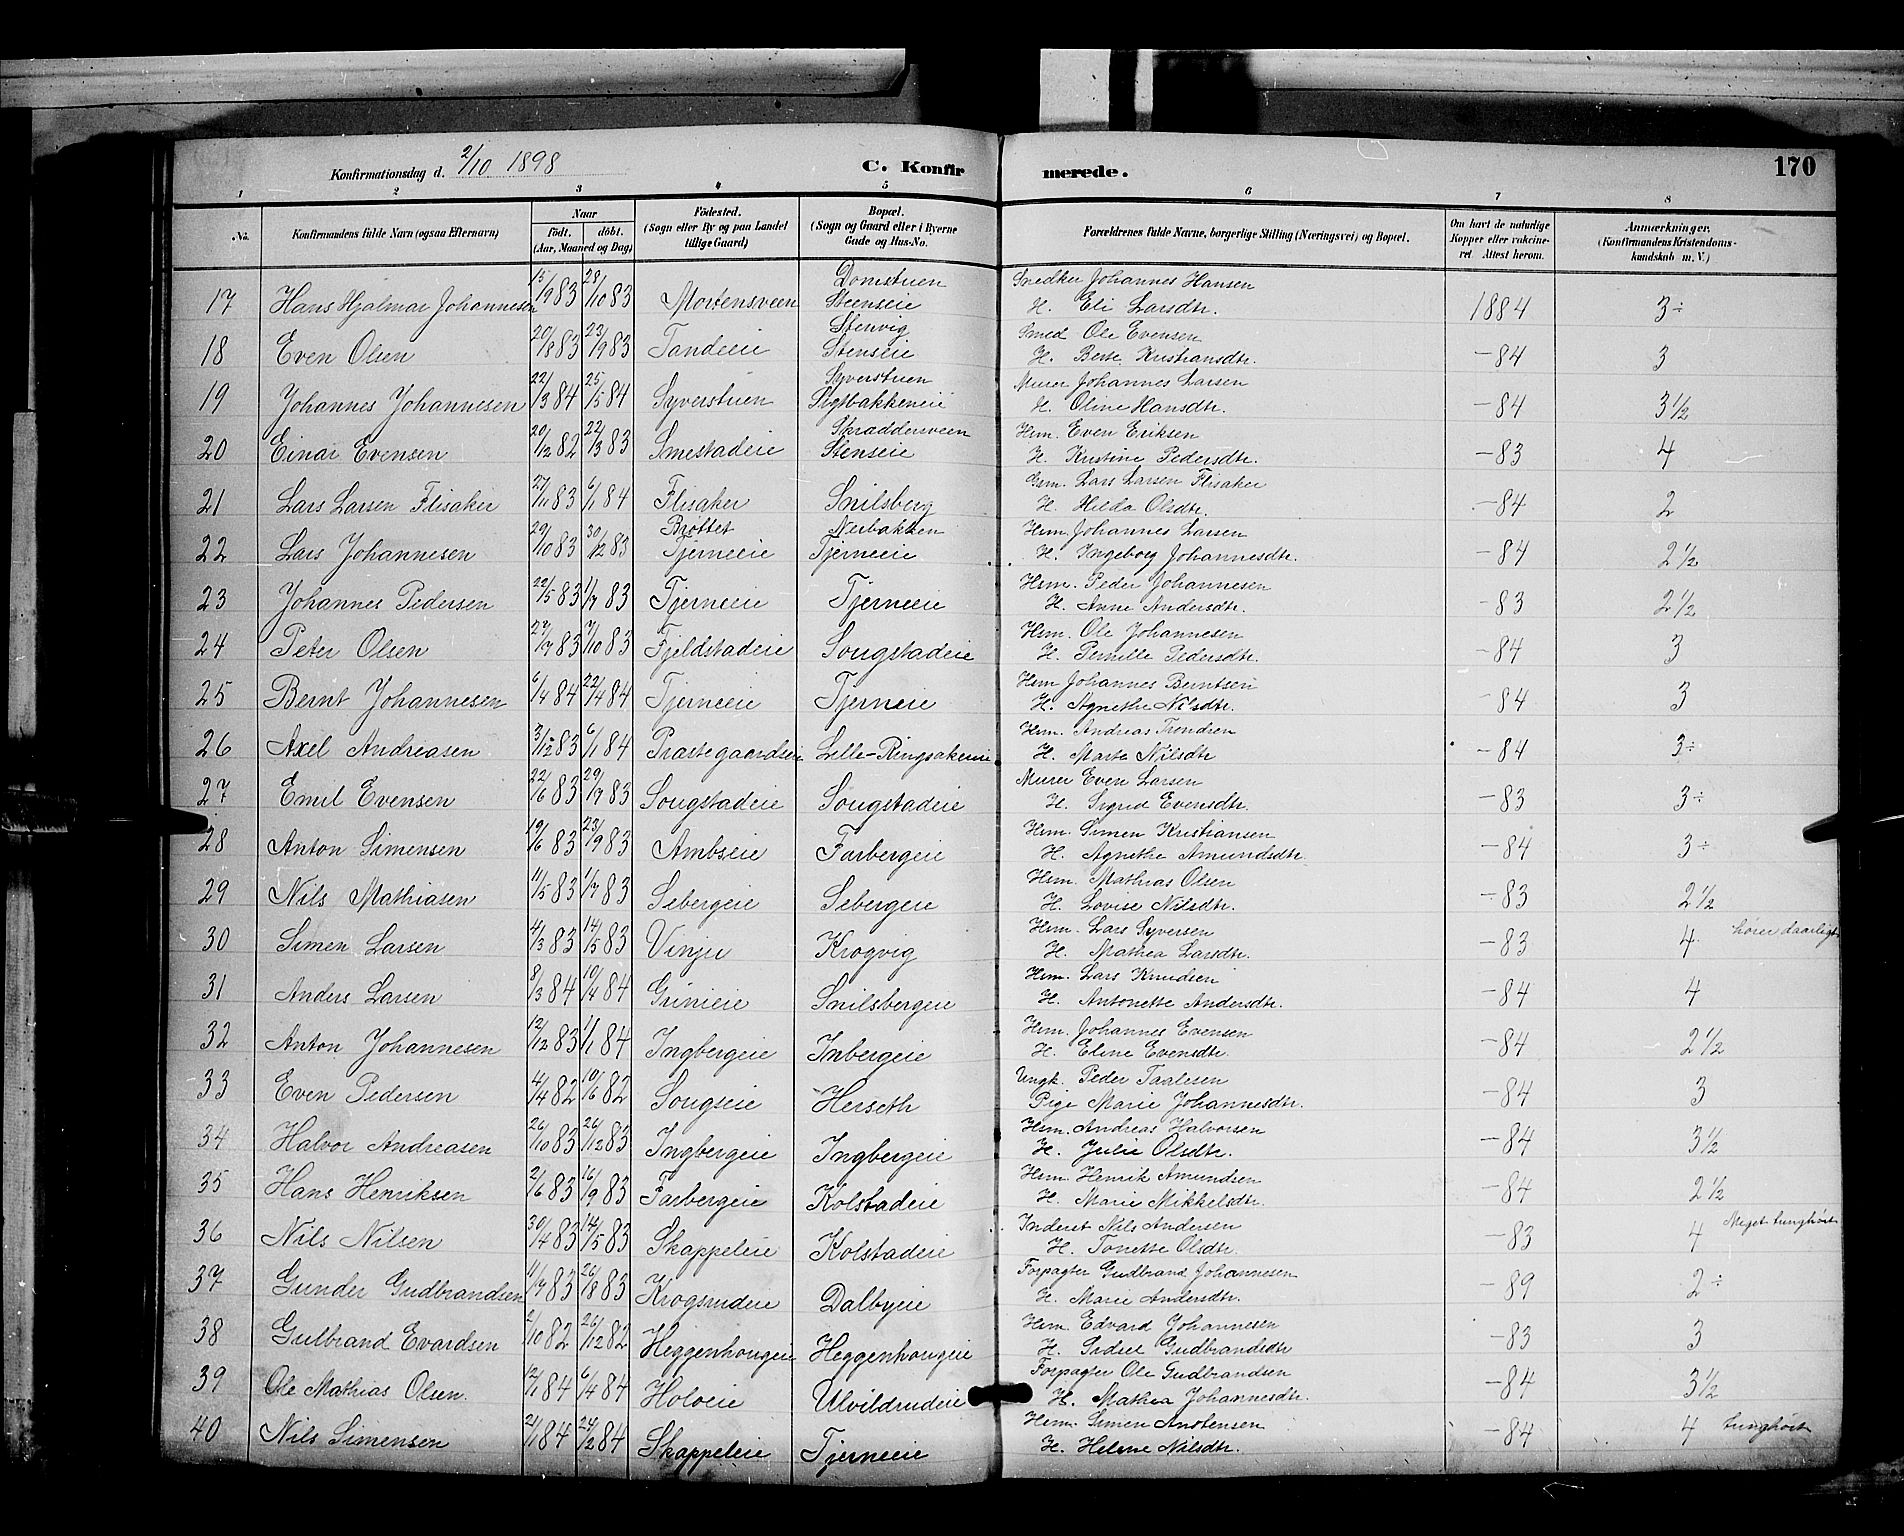 Konfirmationsdag d. 2/10 1898
C. Konfirmerede.
170
1 2 3 4 5 6 7 8
No.
Konfirmandens fulde Navn (ogsaa Efternavn)
Naar
født. døbt.
(Aar, Maaned og Dag)
Fødested.
(Sogn eller By og paa Landet
tillige Gaard)
Bopæl.
(Sogn og Gaard eller i Byerne
Gade og Hus-No.
Forældrenes fulde Navne, borgerlige Stilling (Næringsvei) og Bopæl.
Om havt de naturlige
Kopper eller vakcine-
ret. Attest herom.
Anmærkninger.
(Konfirmandens Kristendoms-
kundskab m. V.)
17 Hans Hjalmar Johannesen 15/9 83 28/10 83 Mortensveen Domstuen Steenseie Snedker Johannes Hansen H. Eli Larsdtr. 1884 3÷
18 Even Olsen 20/8 83 23/9 83 Tandeeie Stenvig Stenseie Smed Ole Evensen H. Berte Kristiansdtr. -84 3
19 Johannes Johannesen 22/3 84 25/5 84 Syverstuen Syverstuen Sigtbakkeneie Murer Johannes Larsen H. Oline Hansdtr. -84 3½
20 Einar Evensen 20/12 82 22/3 83 Smestadeie Skraddersveen Stenseie Hsm. Even Eriksen H. Kristine Pedersdtr. -83 4
21 Lars Larsen Flisaker 27/11 83 6/1 84 Flisaker Snilsberg Gsm. Lars Larsen Flisaker H. Hilda Olsdtr. -84 2
22 Lars Johannesen 29/10 83 30/12 83 Brøttet Tjerneeie Nerbakken Tjerneeie Hsm Johannes Larsen H. Ingeborg Johannesdtr. -84 2½
23 Johannes Pedersen 22/5 83 1/7 83 Tjerneeie Tjerneeie Hsm. Peder Johannesen H. Anne Andersdtr. -83 2½
24 Peter Olsen 27/7 83 7/10 83 Fjeldstadeie Songstadeie Hsm. Ole Johannesen H. Pernille Pedersdtr. -84 3
25 Bernt Johannesen 6/4 84 22/4 84 Tjerneeie Tjerneie Hsm Johannes Berntsen H. Agnethe Nilsdtr. -84 3
26 Axel Andreasen 3/12 83 6/1 84 Præstegaardseie Lille-Ringsakereie Hsm. Andreas Trondsen H. Marte Nilsdtr -84 3÷
27 Emil Evensen 22/6 83 29/7 83 Songstadeie Songstadeie Murer Even Larsen H. Sigrid Evensdtr. -83 3÷
28 Anton Simensen 19/6 83 23/9 83 Ambseie Farbergeie Hsm. Simen Kristiansen H. Agnethe Amundsdtr. -84 3÷
29 Nils Mathiasen 11/5 83 1/7 83 Sebergeie Sebergeie Hsm. Mathias Olsen H. Lovise Nilsdtr. -83 2½
30 Simen Larsen 4/3 83 14/5 83 Vinju Krogvig Hsm. Lars Syversen H. Mathea Larsdtr. -83 4 hører daarligt
31 Anders Larsen 8/3 84 10/4 84 Grinieie Snilsbergeie Hsm. Lars Knudsen H. Antonette Andersdtr. -84 4
32 Anton Johannesen 12/12 83 1/1 84 Ingbergeie Inbergeie Hsm. Johannes Evensen H. Eline Evensdtr. -84 2½
33 Even Pedersen 4/4 82 10/6 82 Songseie Herseth Ungk. Peder Taalesen Pige Marie Johannesdtr. -84 3
34 Halvor Andreasen 26/10 83 26/12 83 Ingbergeie Ingbergeie Hsm. Andreas Halvorsen H. Julie Olsdtr. -84 3½
35 Hans Henriksen 2/6 83 16/9 83 Farbergeie Kolstadeie Hsm. Henrik Amundsen H. Marie Mikkelsdtr. -84 2½
36 Nils Nilsen 30/4 83 14/5 83 Skappeleie Kolstadeie Inderst Nils Andersen H. Tonette Olsdtr. -83 4 Meget tunghørt
37 Gunder Gudbrandsen 11/7 83 26/8 83 Krogsrudeie Dalbyeie Forpagter Gudbrand Johannesen H. Marie Andersdtr. -89 2÷
38 Gulbrand Evardsen 2/10 82 26/12 82 Heggenhougeie Heggenhougeie Hsm. Edvard Johannesen H. Sidsel Gudbrandsdtr -83 3
39 Ole Mathias Olsen. 12/1 84 6/4 84 Holoeie Ulvildrudeie Forpagter Ole Gudbrandsen H. Mathea Johannesdtr. -84 3½
40 Nils Simensen 21/1 84 24/2 84 Skappeleie Tjerneeie Hsm. Simen Anstensen H. Helene Nilsdtr. -84 4 tunghørt